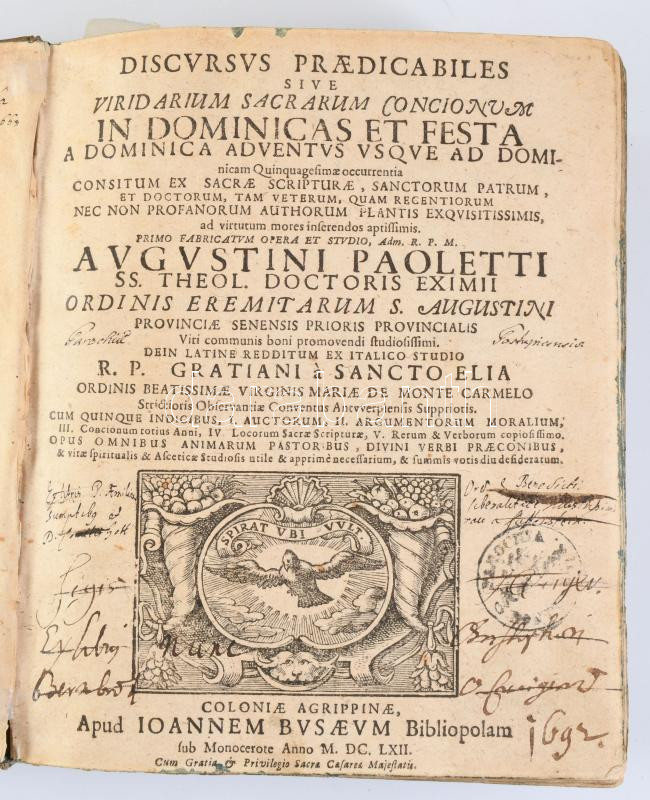 DISCVRSVS PRÆDICABILES
SIVE
VIRIDARIUM SACRARUM CONCIONVM
IN DOMINICAS ET FESTA
A DOMINICA ADVENTVS VSQVE AD DOMI-
nicam Quinquagesimæ occurrentia
CONSITUM EX SACRÆ SCRIPTURÆ, SANCTORUM PATRUM,
ET DOCTORUM, TAM VETERUM, QUAM RECENTIORUM
NEC NON PROFANORUM AUTHORUM PLANTIS EXQVISITISSIMIS,
ad virtutum mores inserendos aptissimis.
PRIMO FABRICATVM OPERA ET STVDIO, Adm. R. P. M.
AVGVSTINI PAOLETTI
SS. THEOL. DOCTORIS EXIMII
ORDINIS EREMITARUM S. AUGUSTINI
PROVINCIÆ SENENSIS PRIORIS PROVINCIALIS
Viri communis boni promovendi studiosissimi.
DEIN LATINE REDDITUM EX ITALICO STUDIO
R. P. GRATIANI à SANCTO ELIA
ORDINIS BEATISSIMÆ VIRGINIS MARIÆ DE MONTE CARMELO
Strictioris Observantiæ Conventus Antverpiensis Supprioris.
CUM QUINQUE INDICIBUS, I. AUCTORUM, II. ARGUMENTORUM MORALIUM,
III. Concionum totius Anni, IV Locorum Sacræ Scripturæ, V. Rerum & Verborum copiosissimo.
OPUS OMNIBUS ANIMARUM PASTORIBUS, DIVINI VERBI PRÆCONIBUS,
& vitæ spiritualis & Asceticæ Studiosis utile & apprimè necessarium, & summis votis diu desideratum.
SPIRAT VBI VULT.
nunc
COLONIÆ AGRIPPINÆ,
Apud IOANNEM BVSÆVM Bibliopolam
sub Monocerote Anno M. DC. LXII.
Cum Gratia & Privilegio Sacræ Cæsareæ Majestatis.
1692.